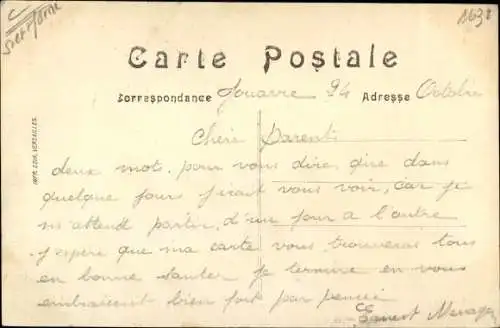 C
Seine et Marne
1638
Carte Postale
Correspondance Jouarre 24 Adresse Octobre
IMP. EDIA. VERSAILLES.
Chers Parents
deux mots pour vous dire que dans
quelque jours j'irait vous voir, car je
m'attend partir d'un jour a l'autre
J'espère que ma carte vous trouveras tous
en bonne santer je termine en vous
embraicent bien fort par pensée
Ernest